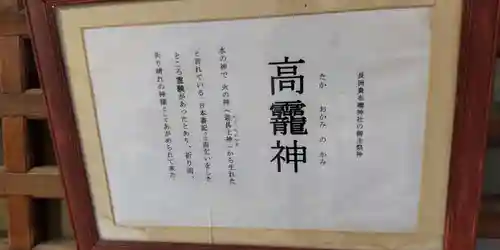 長岡貴布禰神社の御主祭神
たか おかみ の かみ
高龗神
水の神で、火の神
から生れた
と言れている。日本書紀に雨乞いをした
ところ霊験があったとあり、祈り雨、
祈り晴れの神様としてあがめられて来た。